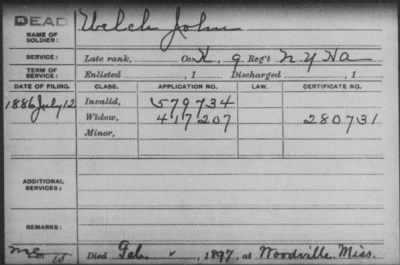 DEAD
NAME OF SOLDIER: Welch John
SERVICE: Late rank, Co. K, 9 Reg't N Y Ha
TERM OF SERVICE: Enlisted , 1 Discharged , 1
DATE OF FILING. CLASS. APPLICATION NO. LAW. CERTIFICATE NO.
1886 July 12 Invalid, 579734
Widow, 417207 280731
Minor,
ADDITIONAL SERVICES:
REMARKS:
Died Feb. " , 1897, at Woodville. Miss.